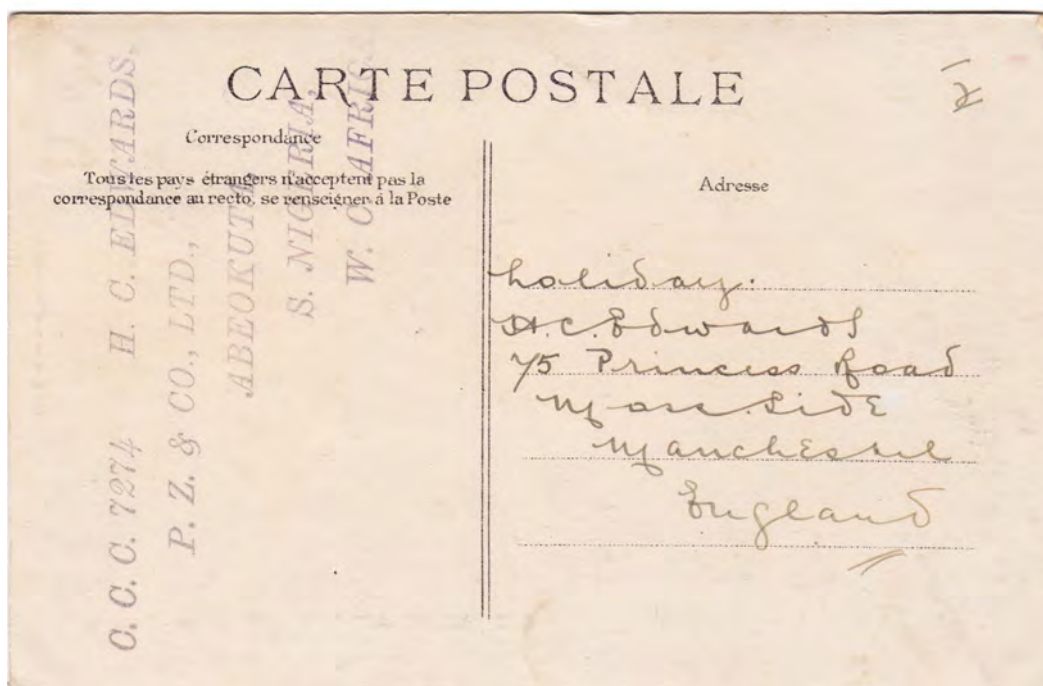 CARTE POSTALE
Correspondance
Tous les pays étrangers n'acceptent pas la
correspondance au recto, se renseigner à la Poste
Adresse
C. C. C. 7274 H. C. EDWARDS,
P. Z. & CO., LTD.,
ABEOKUTA
S. NIGERIA,
W. C. AFRICA
holiday:
H. C. Edwards
75 Princess Road
Moss Side
Manchester
England